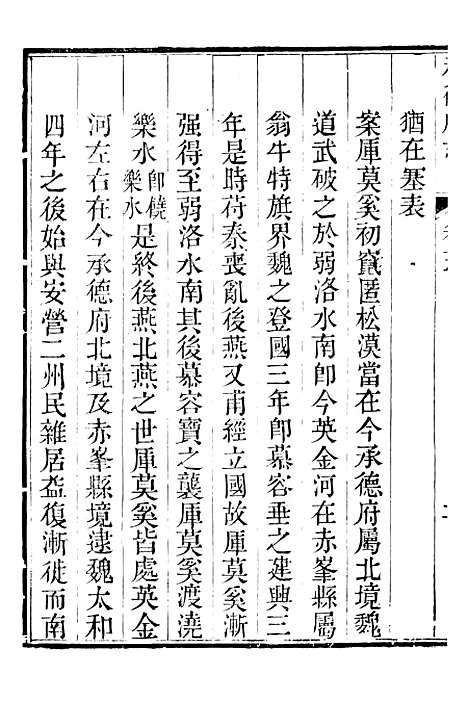 猶在塞表
案厙莫奚初竄匿松漠當在今承德府屬北境魏
道武破之於弱洛水南卽今英金河在赤峯縣屬
翁牛特旗界魏之登國三年卽慕容垂之建興三
年是時苻秦喪亂後燕又甫經立國故厙莫奚漸
强得至弱洛水南其後慕容寶之襲厙莫奚渡澆
樂水卽饒樂水是終後燕北燕之世厙莫奚皆處英金
河左右在今承德府北境及赤峯縣境逮魏太和
四年之後始與安營二州民雜居益復漸徙而南